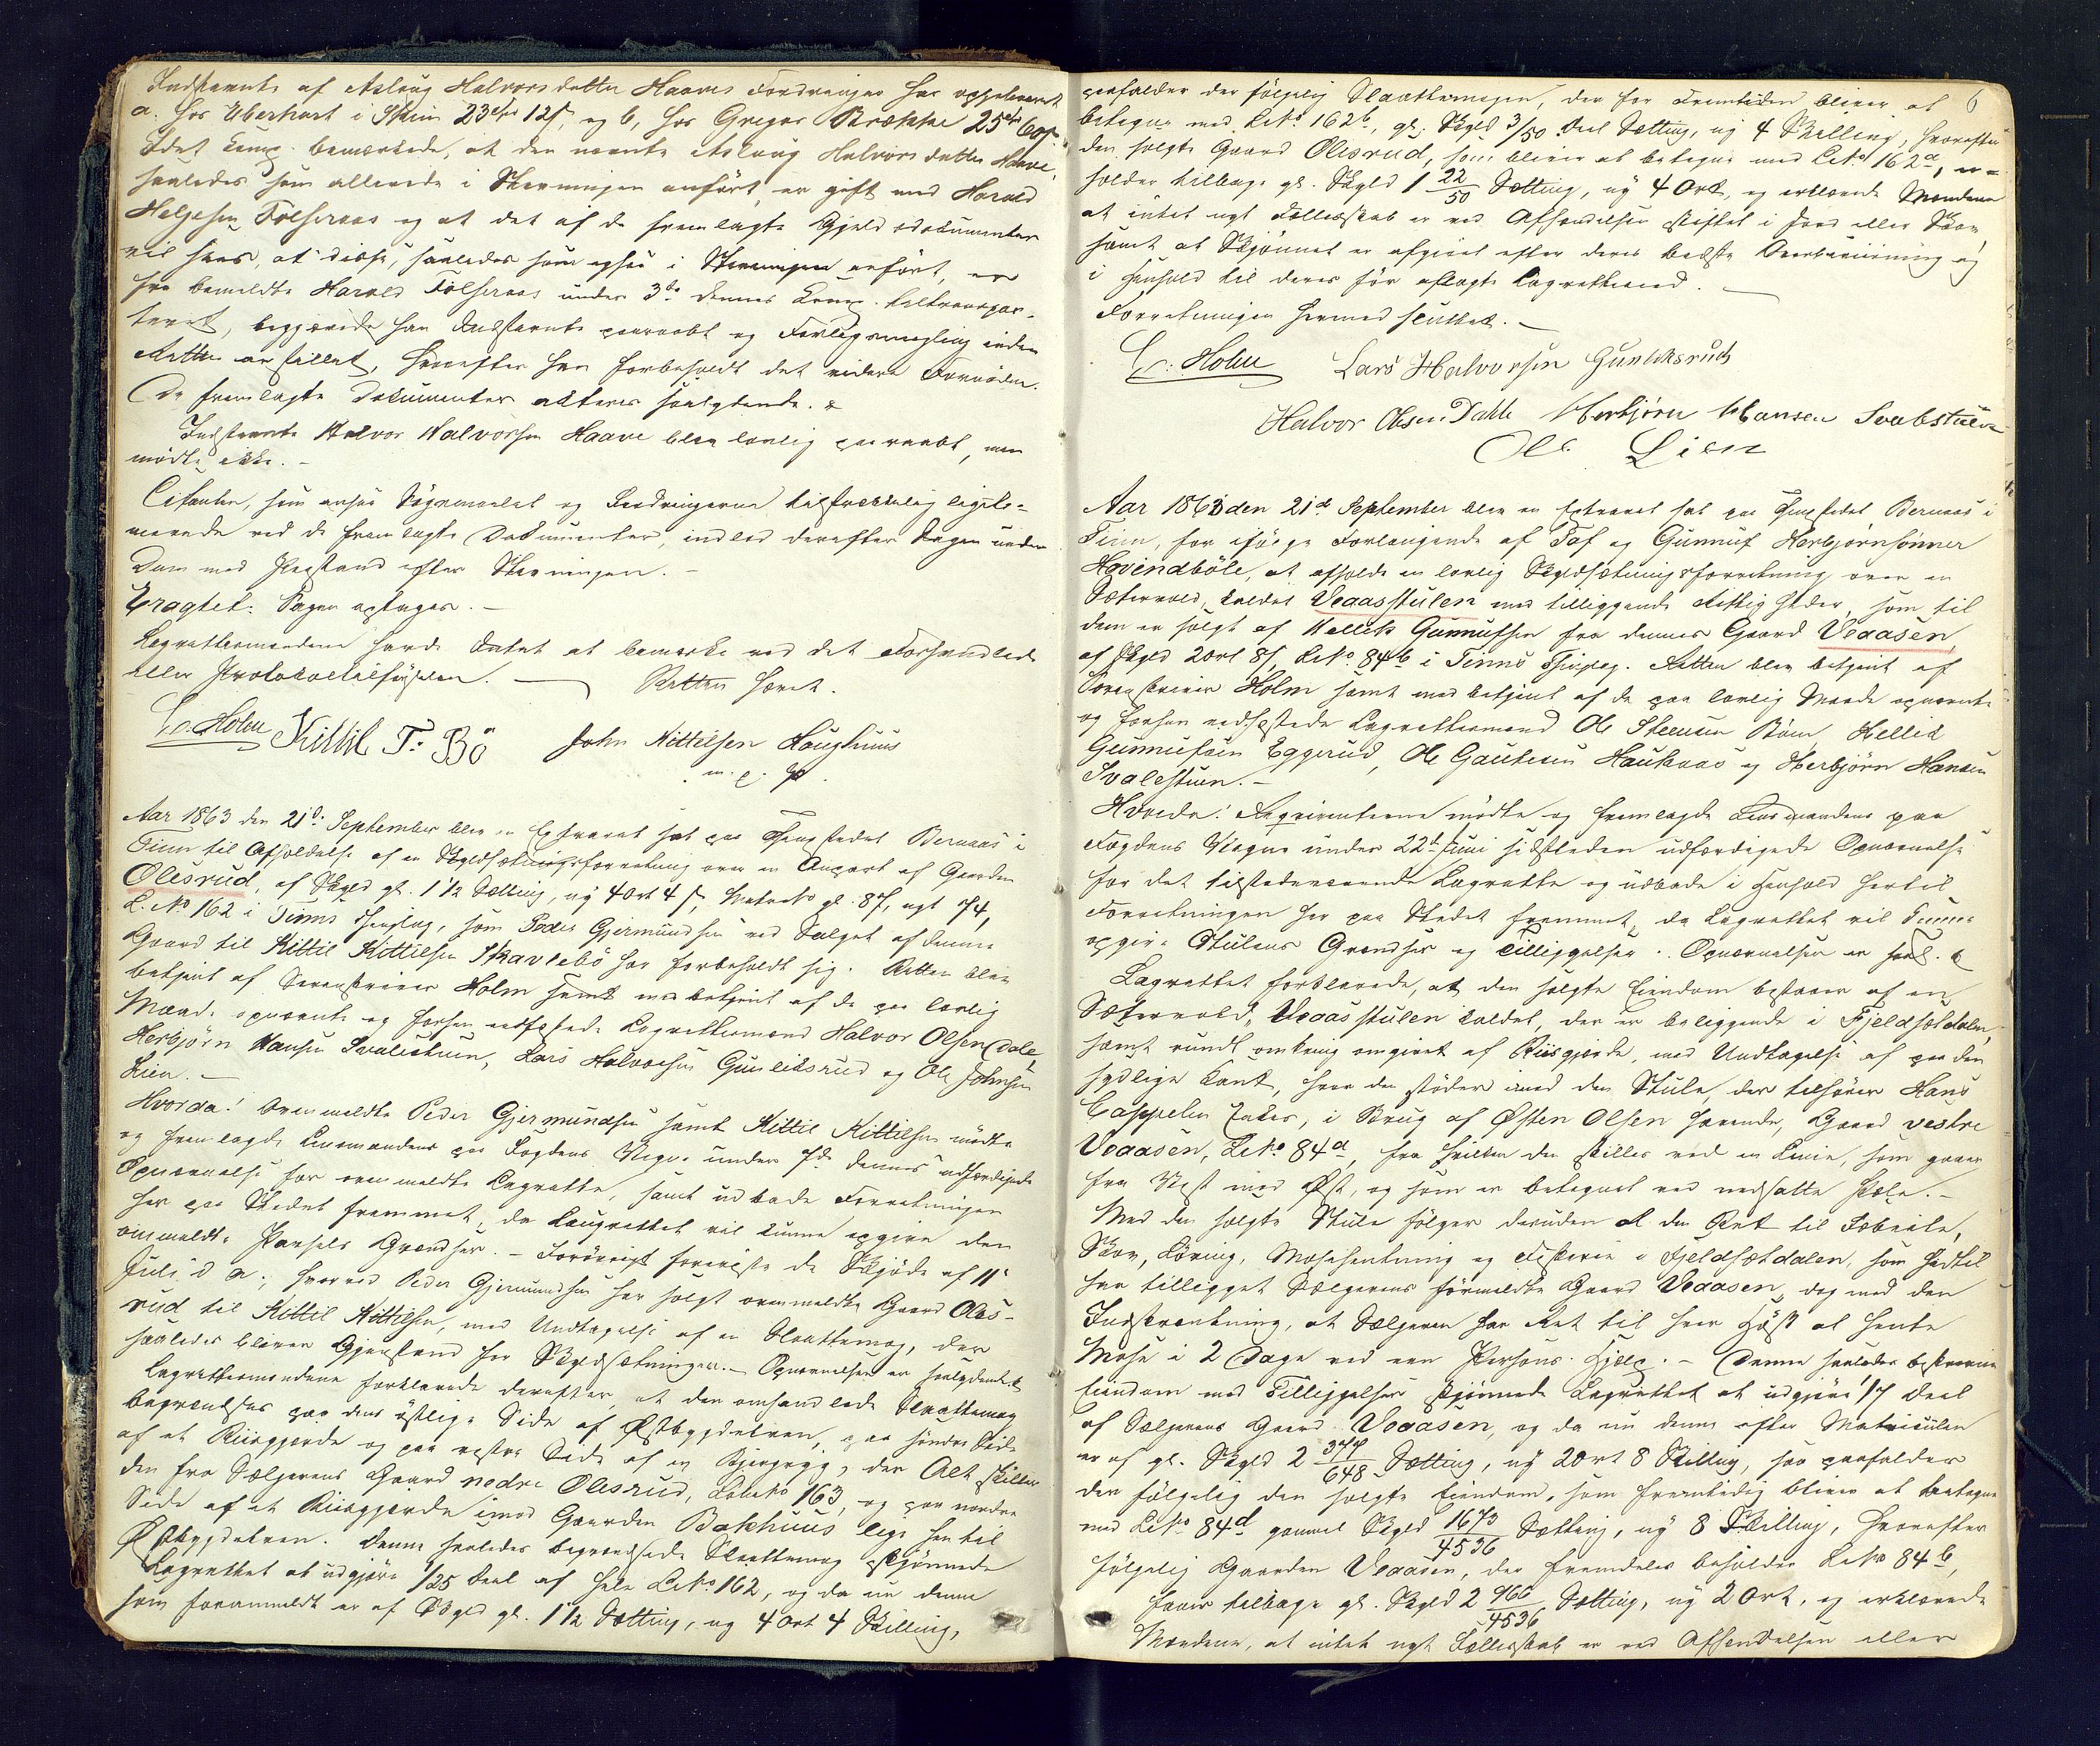 Indstevnte af Aslaug Halvorsdatter Haaves Fordringer har opebaaret
a. hos Eberhart i Skien 23 Spd 12 s, og b, hos Gregar Brække 25 Spd 60 s.
Idet Comp. bemærkede, at den nævnte Aslaug Halvorsdatter Haave,
saaledes som allerede i Stevningen anført, er gift med Harald
Helgesen Følseraas og at det af de fremlagte Gjeldsdokumenter
vil sees, at disse, saaledes som ogsaa i Stevningen anført, er
fra bemeldte Harald Følseraas under 3de dennes Comp. tiltranspor-
teret, begjærede han Indstevnte paaraabt og Forligsmægling inden
Retten anstillet, hvorefter han forbeholdt det videre Fornødne.
De fremlagte Dokumenter akteres saalydende. &
Indstevnte Halvor Halvorsen Haave blev lovlig paaraabt, men
mødte ikke. –
Citanten, som ansaa Søgsmaalet og Fordringerne tilstrækkelig legiti-
merede ved de fremlagte Dokumenter, indlod derefter Sagen under
Dom med Paastand efter Stevningen. –
Eragtet: Sagen optages. –
Lagrettemændene havde Intet at bemærke ved det Forhandlede
eller Protokoltilførselen. — Retten hævet.
C. Holm Kittil T. Bö John Kittilsen Haughuus
m. p. P.
Aar 1863 den 21de September blev en Extraret sat paa Thingstedet Bernaas i
Tinn til Afholdelse af en Skyldsætningsforretning over en Anpart af Gaarden
Olesrud, af Skyld gl. 1 1/2 Sætting, ny 4 Ort 4 s, Matr No gl. 87, nyt 74,
L. No 162 i Tinns Thinglag, som Peder Gjermundsen ved Salget af denne
Gaard til Kittil Kittilsen Skavlebö har forbeholdt sig. Retten blev
betjent af Sorenskriver Holm samt medbetjent af de paa lovlig
Maade opnævnte og forhen edfæstede Lagrettemænd Halvor Olsen Dale,
Herbjörn Hansen Svalestuen, Lars Halvorsen Gunleiksrud og Ole Johnsen
Lien. –
Hvorda! Ovenmeldte Peder Gjermundsen samt Kittil Kittilsen mödte
og fremlagde Lensmandens paa Fogdens Vegne under 7de dennes udfærdigede
Opnævnelse for ovenmeldte Lagrette, samt udbade Forretningen
her paa Stedet fremmet, da Laugrettet vil kunne opgive den
ommeldte Parsels Grændser. – Forøvrigt foreviste de Skjöde af 11te
Juli d. A., hvorved Peder Gjermundsen har solgt ovenmeldte Gaard Oles-
rud til Kittil Kittilsen, med Undtagelse af en Slaattemog, der
saaledes bliver Gjenstand for Skyldsætningen. – Opnævnelsen er saalydende &
Lagrettemændene forklarede derefter, at den omhandlede Slaattemog
begrændses paa den östlige Side af Østbygdelven, paa söndre Side
af et Riisgjerde og paa vestre Side af en Bjergryg, der Alt skiller
den fra Sælgerens Gaard nedre Olesrud, Löbe No 163, og paa nordre
Side af et Riisgjerde imod Gaarden Bakhuus lige hen til
Østbygdelven. Denne saaledes begrændsede Slaattemog skjönnede
Lagrettet at udgjöre 1/25 Deel af hele L. No 162, og da nu denne
som forommeldt er af Skyld gl. 1 1/2 Sætting, ny 4 Ort 4 Skilling,
6
paafalder der fölgelig Slaattemogen, der for Fremtiden bliver at
betegne med L. No 162b, gl. Skyld 3/50 Deel Sætting, ny 4 Skilling, hvorefter
den solgte Gaard Olesrud, som bliver at betegne med L. No 162a, be-
holder tilbage gl. Skyld 1 22/50 Sætting, ny 4 Ort, og erklærede Mændene
at intet nyt Fællesskab er ved Afhændelsen stiftet i Jord eller Skov,
samt at Skjönnet er afgivet efter deres bedste Overbeviisning og
i Henhold til deres för aflagte Lagretteeed. –
Forretningen hermed sluttet. –
C. Holm Lars Halvorsen Gunleksrud
Halvor Olsen Dahle Herbjørn Hansen Svalestuen
Ole Lien
Aar 1863 den 21de September blev en Extraret sat paa Thingstedet Bernaas i
Tinn, for ifølge Forlangende af Taf og Gunnuf Herbjørnsönner
Hovindböle, at afholde en lovlig Skyldsætningsforretning over en
Sætervold, kaldet Veaasstulen med tilliggende Rettigheder, som til
dem er solgt af Hellik Gunnufsen fra dennes Gaard Veaasen,
af Skyld 2 Ort 8 s, L. No. 84b i Tinns Thinglag. Retten blev betjent af
Sorenskriver Holm samt medbetjent af de paa lovlig Maade opnævnte
og forhen edfæstede Lagrettemænd Ole Steensen Böen, Hellik
Gunnufsen Eggerud, Ole Gautesen Haukaas og Herbjörn Hansen
Svalestuen. –
Hvorda! Requirenterne mödte og fremlagde Lensmandens paa
Fogdens Vegne under 22de Juni sidstleden udfærdigede Opnævnelse
for det tilstedeværende Lagrette og udbade i Henhold hertil
Forretningen her paa Stedet fremmet, da Lagrettet vil kunne
opgive Stulens Grændser og Tilliggelser. Opnævnelsen er saal. &
Lagrettet forklarede, at den solgte Eiendom bestaaer af en
Sætervold, Veaasstulen kaldet, der er beliggende i Fjeldsetdalen,
samt rundt omkring omgivet af Riisgjerde, med Undtagelse af paa den
sydlige Kant, hvor den stöder imod den Stule, der tilhører Hans
Cappelen, i Brug af Østen Olsen havende, Gaard vestre
Veaasen, L. No. 84a, fra hvilken den skilles ved en Linie, som gaaer
fra Vest mod Øst, og som er betegnet ved nedsatte Pæle. –
Med den solgte Stule fölger desuden al den Ret til Fæbeite,
Skov, Löving, Mosehentning og Fisterie i Fjeldsetdalen, som hidtil
har tilligget Sælgerens förmeldte Gaard Veaasen, dog med den
Indskrænkning, at Sælgeren har Ret til hver Höst at hente
Mose i 2 Dage ved een Persons Hjelp. – Denne saaledes beskrevne
Eiendom med Tilliggelser skjönnede Lagrettet at udgjöre 1/7 Deel
af Sælgerens Gaard Veaasen, og da nu denne efter Matriculen
er af gl. Skyld 2 377/648 Sætting, ny 2 Ort 8 Skilling, saa paafalder
der fölgelig den solgte Eiendom, som fremtidig bliver at betegne
med L. No 84d gammel Skyld 1673/4536 Sætting, ny 8 Skilling, hvorefter
fölgelig Gaarden Veaasen, der fremdeles beholder L. No 84b,
faaer tilbage gl. Skyld 2 966/4536 Sætting, ny 2 Ort, og erklærede
Mændene, at intet nyt Fællesskab er ved Afhendelsen eller